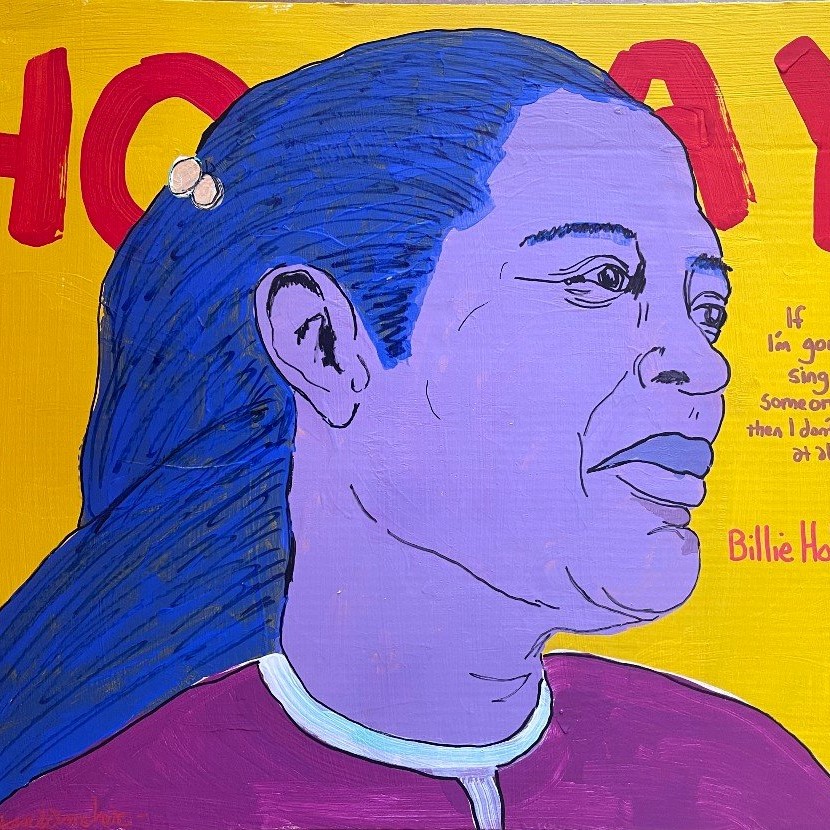 HO AY
If
I'm go
sing
someon
then I don
at al
Billie Ho